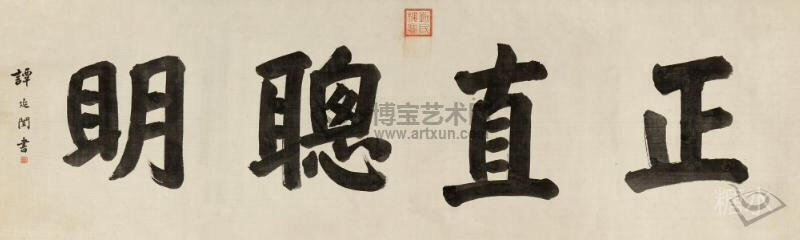 正直聰明
譚延闓書
博宝艺术网
www.artxun.com